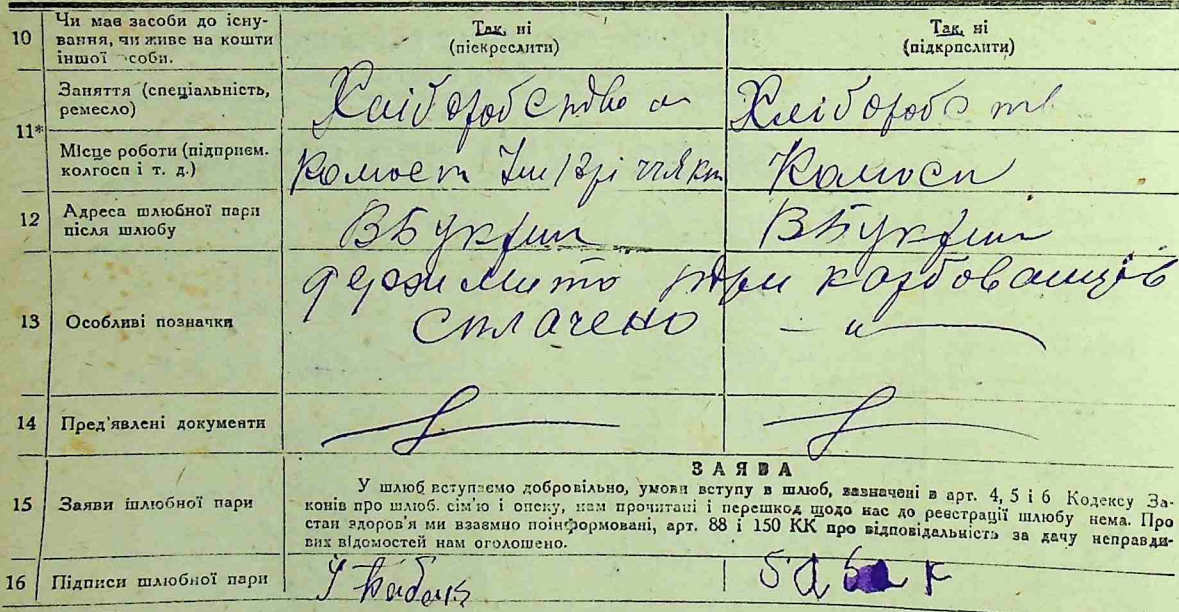 10 Чи має засоби до існу-
вання, чи живе на кошти
іншої особи.
Так, ні
(піекреслити)
Так, ні
(підкрпслити)
11*
Заняття (спеціальність,
ремесло)
Хліборобство
Хлібороб
Місце роботи (підприєм.
колгосп і т. д.)
12 Адреса шлюбної пари
після шлюбу
ВБукрин
ВБукрин
13 Особливі позначки
держ мито три карбованців
сплачено — " —
14 Пред'явлені документи
15 Заяви шлюбної пари
ЗАЯВА
У шлюб вступаємо добровільно, умови вступу в шлюб, зазначені в арт. 4, 5 і 6 Кодексу За-
конів про шлюб. сім'ю і опеку, нам прочитані і перешкод щодо нас до реєстрації шлюбу нема. Про
стан здоров'я ми взаємно поінформовані, арт. 88 і 150 КК про відповідальність за дачу неправди-
вих відомостей нам оголошено.
16 Підписи шлюбної пари